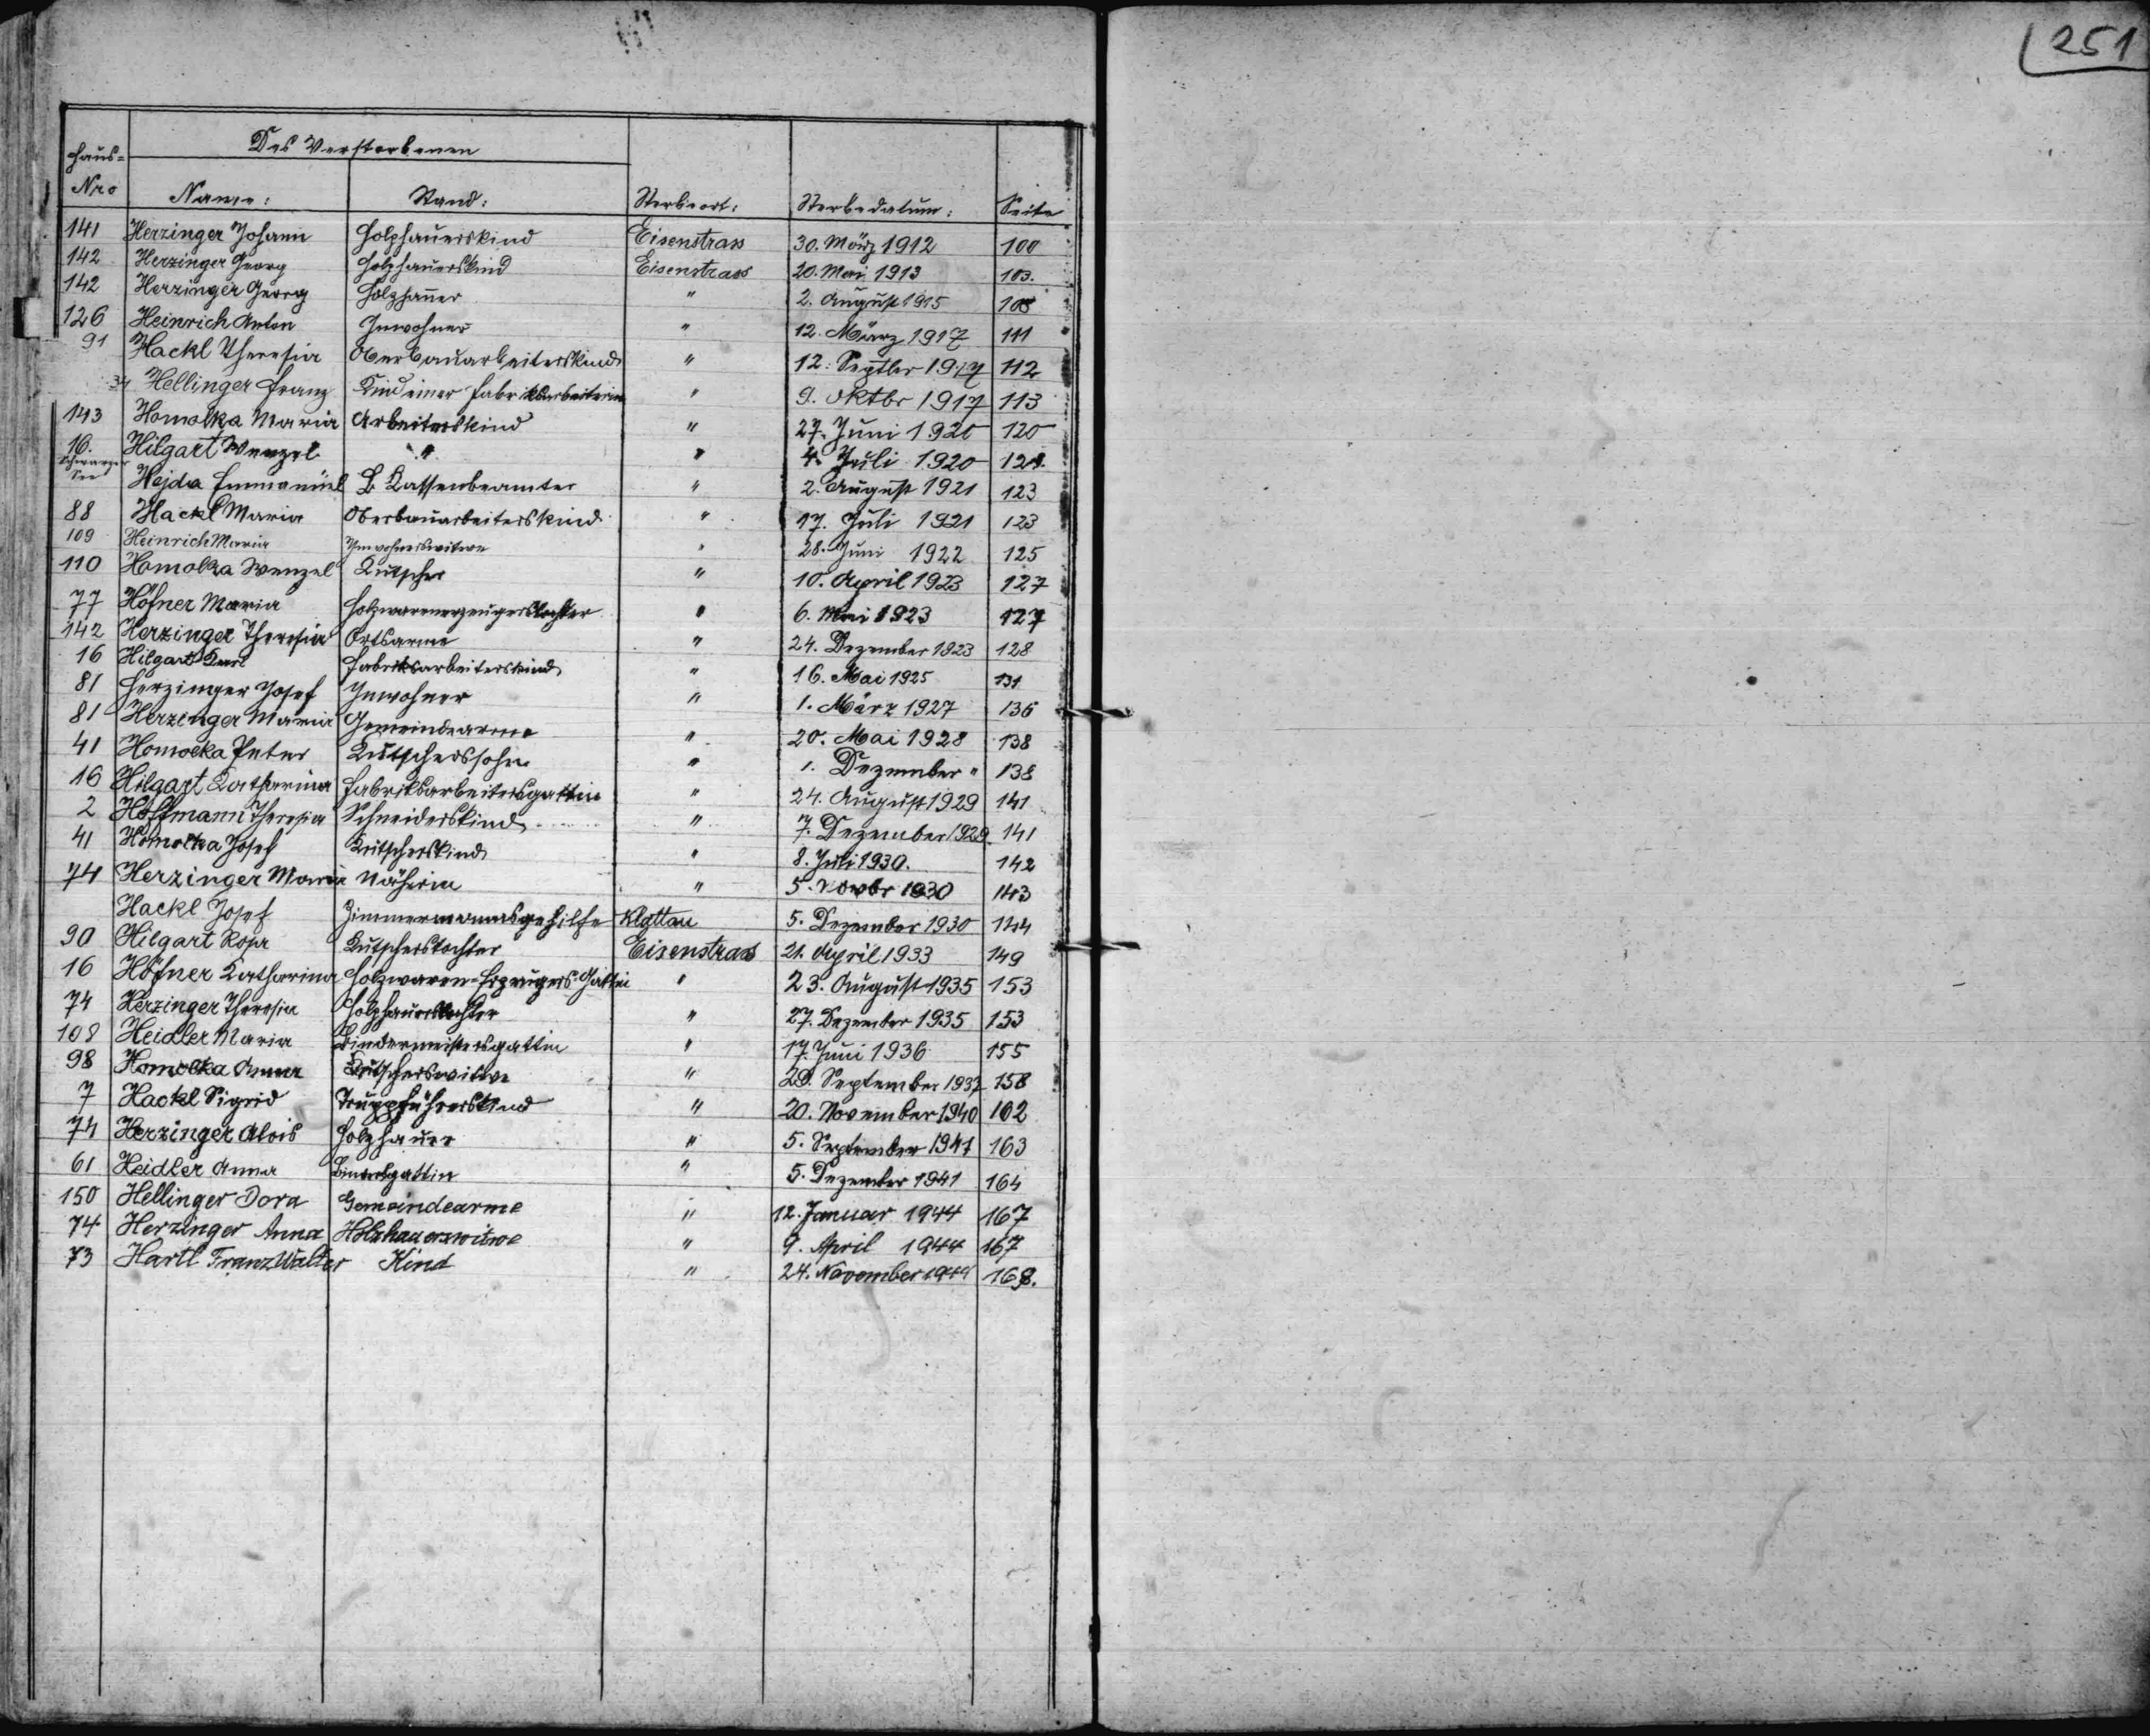 251
Des Verstorbenen
Haus-Nro Name: Stand: Sterbeort: Sterbedatum: Seite
141 Herzinger Johann Holzhauerskind Eisenstrass 30. März 1912 100
142 Herzinger Georg Holzhauerskind Eisenstrass 20. Mai 1913 103.
142 Herzinger Georg Holzhauer " 2. August 1915 108
126 Heinrich Anton Inwohner " 12. März 1917 111
91 Hackl Theresia Oberbauarbeiterskind " 12. Septbr 1917 112
34 Hellinger Franz Kind einer Fabriksarbeiterin " 9. Oktbr 1917 113
143 Homolka Maria Arbeiterskind " 27. Juni 1920 120
16. Hilgart Wenzel " " 4. Juli 1920 121.
Schwarzer See Hejda Emmanuel B. Kassenbeamter " 2. August 1921 123
88 Hackl Maria Oberbauarbeiterskind " 17. Juli 1921 123
109 Heinrich Maria Inwohnerswitwe " 28. Juni 1922 125
110 Homolka Wenzel Kutscher " 10. April 1923 127
77 Höfner Maria Holzwarenerzeugerstochter " 6. Mai 1923 127
142 Herzinger Theresia Ortsarme " 24. Dezember 1923 128
16 Hilgart Karl Fabriksarbeiterskind " 16. Mai 1925 131
81 Herzinger Josef Inwohner " 1. März 1927 136
81 Herzinger Maria Gemeindearme " 20. Mai 1928 138
41 Homolka Peter Kutscherssohn " 1. Dezember " 138
16 Hilgart Katharina Fabriksarbeitersgattin " 24. August 1929 141
2 Hoffmann Theresia Schneiderskind " 7. Dezember 1929 141
41 Homolka Josef Kutscherskind " 8. Juli 1930. 142
74 Herzinger Maria Näherin " 5. Novbr 1930 143
Hackl Josef Zimmermannsgehilfe Klattau 5. Dezember 1930 144
90 Hilgart Rosa Kutscherstochter Eisenstrass 21. April 1933 149
16 Höfner Katharina Holzwaren-Erzeugers-Gattin " 23. August 1935 153
74 Herzinger Theresia Holzhauerstochter " 27. Dezember 1935 153
108 Heidler Maria Bindermeistersgattin " 17. Juni 1936 155
98 Homolka Anna Kutscherswitwe " 29. September 1937 158
7 Hackl Sigrid Truppführerskind " 20. November 1940 162
74 Herzinger Alois Holzhauer " 5. September 1941 163
61 Heidler Anna Bindersgattin " 5. Dezember 1941 164
150 Hellinger Dora Gemeindearme " 12. Januar 1944 167
74 Herzinger Anna Holzhauerswitwe " 9. April 1944 167
73 Hartl Franz Walter Kind " 24. November 1944 168.